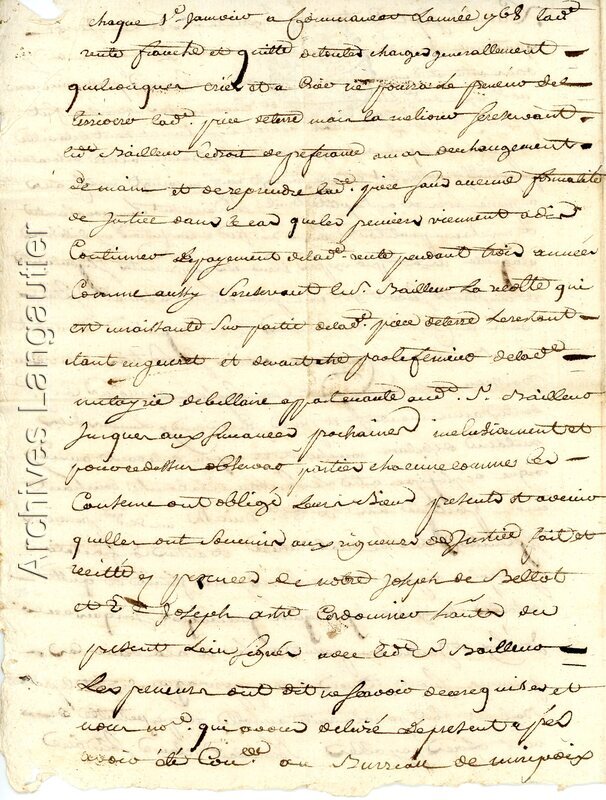 chaque 1er Janvier a Commancer L'année 1768 lad.e
rente franche et quitte de toutes charges generallement
quelconques et a ne pourra Le preneur
lad.e piece de terre mais la Se reservant
led.t Bailleur Le droit de preferance au cas de changement
de main et de reprendre lad.e piece sans aucune formalité
de Justice dans Le cas que les preneurs viennent a
Continuer Le payement de lad.e rente pendant trois années
Comme aussy Se reservant led.t S.r Bailleur La recolte qui
est naissante Sur partie de lad.e piece de terre Le restant
etant en gueret et devant etre par le fermier de lad.e
metayrie de billaire appartenante aud.t S.r Bailleur
Jusques aux Semances prochaines inclusivement et
pour ce dessus observer parties chacune comme les
Conserne ont obligé Leurs Biens presents et avenir
quelles ont Soumis aux rigueurs de Justice fait et
recitté en presence de Joseph de Bellot
et de Joseph astre Cordonnier
present Lieu signés avec led.t S.r Bailleur
Les preneurs ont dit ne Scavoir de ce requis et
nous no.re qui avons delivré Le present apres
avoir été Con.llé au Burreau de mirepoix
Archives Langautier